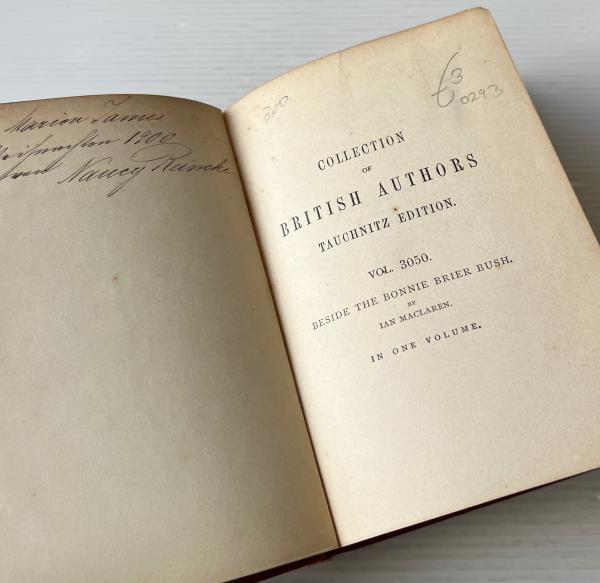 Marion James
Weihnachten 1900
von Nancy Reincke
300
£3
0293
COLLECTION
OF
BRITISH AUTHORS
TAUCHNITZ EDITION.
VOL. 3050.
BESIDE THE BONNIE BRIER BUSH.
BY
IAN MACLAREN.
IN ONE VOLUME.